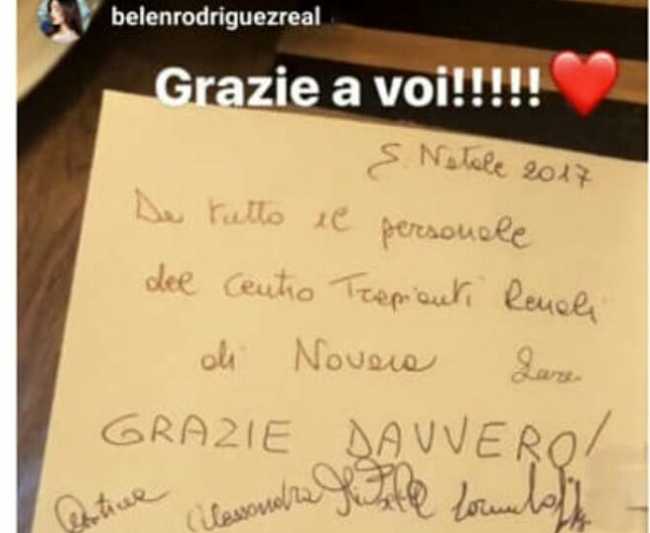 belenrodriguezreal
Grazie a voi!!!!!
S. Natale 2017
Da tutto il personale
del Centro Trapianti Renali
di Novara
GRAZIE DAVVERO!
Alessandra